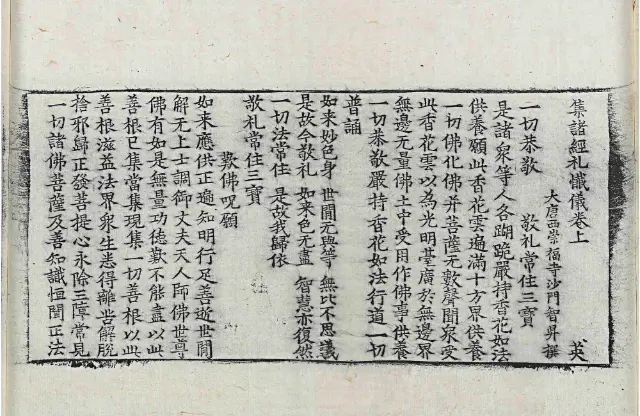 集諸經礼懺儀卷上
大唐西崇福寺沙門智昇撰
英
一切恭敬　敬礼常住三寶
是諸衆等人各䠒跪嚴持香花如法
供養願此香花雲遍滿十方界供養
一切佛化佛并菩薩无數聲聞衆受
此香花雲以為光明臺廣於無邊界
無邊无量佛土中受用作佛亊供養
一切恭敬嚴持香花如法行道一切
普誦
如来妙色身　世閒无與等　無比不思議
是故今敬礼　如来色无盡　智慧亦復然
一切法常住　是故我歸依
敬礼常住三寶
歎佛呪願
如来應供正遍知明行足善逝世閒
解无上士調御丈夫天人師佛世尊
佛有如是無量功徳歎不能盡以此
善根已集當集現集一切善根以此
善根滋益法界衆生悉得離苦解脫
捨邪歸正發菩提心永除三障常見
一切諸佛菩薩及善知識恒聞正法